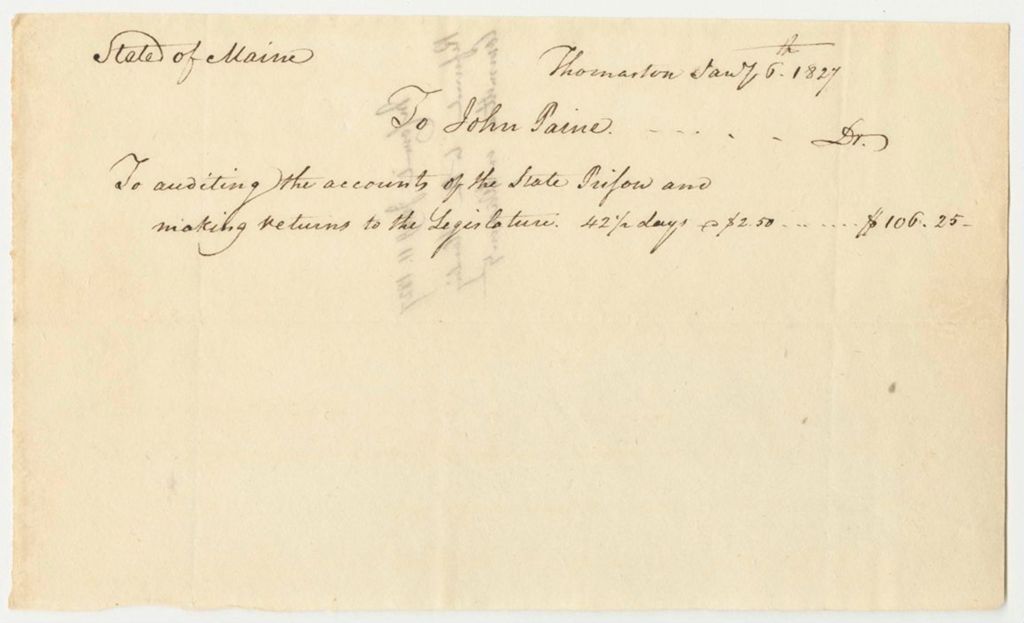 State of Maine
Thomaston Jany 6th. 1827
To John Paine. - - - - Dr.
To auditing the accounts of the State Prison and
making returns to the Legislature. 42 1/2 days @ $2.50 - - - - - - $106.25-